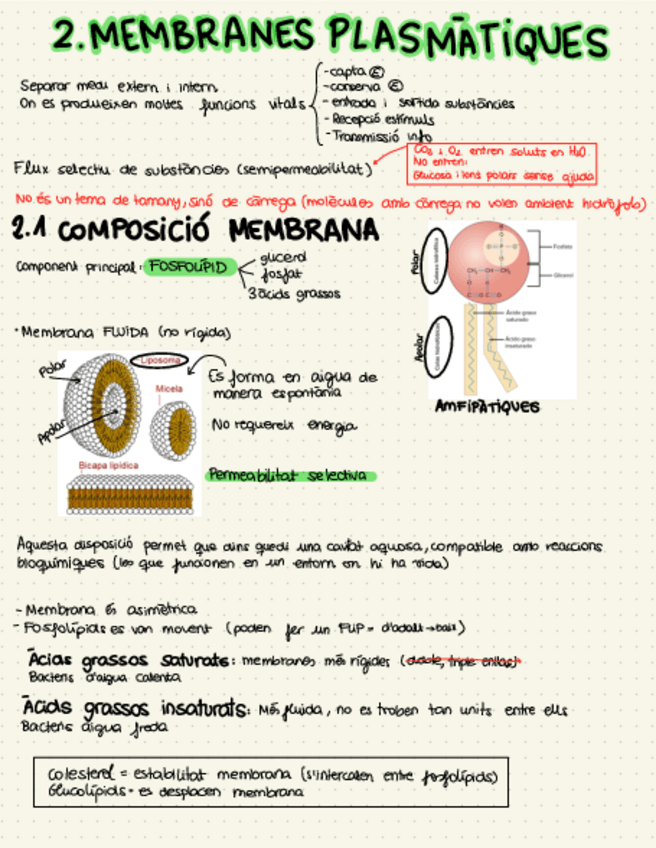 2. MEMBRANES PLASMÀTIQUES
Separar medi extern i intern
On es produeixen moltes funcions vitals
- capta Ⓔ
- conserva Ⓔ
- entrada i sortida substàncies
- Recepció estímuls
- Transmissió info
Flux selectiu de substàncies (semipermeabilitat)
CO₂ i O₂ entren soluts en H₂O
No entren:
Glucosa i ions polars sense ajuda
No és un tema de tamany, sinó de càrrega (molècules amb càrrega no volen ambient hidròfob)
2.1 COMPOSICIÓ MEMBRANA
Component principal: FOSFOLÍPID
glicerol
fosfat
3 àcids grassos
Polar
Cabeza hidrofílica
Fosfato
Glicerol
Ácido graso saturado
Ácido graso insaturado
Apolar
Colas hidrofóbicas
AMFIPÀTIQUES
· Membrana FLUIDA (no rígida)
Polar
Apolar
Liposoma
Micela
Bicapa lipídica
Es forma en aigua de
manera espontània
No requereix energia
Permeabilitat selectiva
Aquesta disposició permet que dins quedi una cavitat aquosa, compatible amb reaccions
bioquímiques (les que funcionen en un entorn on hi ha vida)
- Membrana és asimètrica
- Fosfolípids es van movent (poden fer un FLIP = d'adalt → baix)
Àcids grassos saturats: membranes més rígides (doble, triple enllaç)
Bacteris d'aigua calenta
Àcids grassos insaturats: Més fluida, no es troben tan units entre ells
Bacteris aigua freda
Colesterol = estabilitat membrana (s'intercalen entre fosfolípids)
Glucolípids = es desplacen membrana